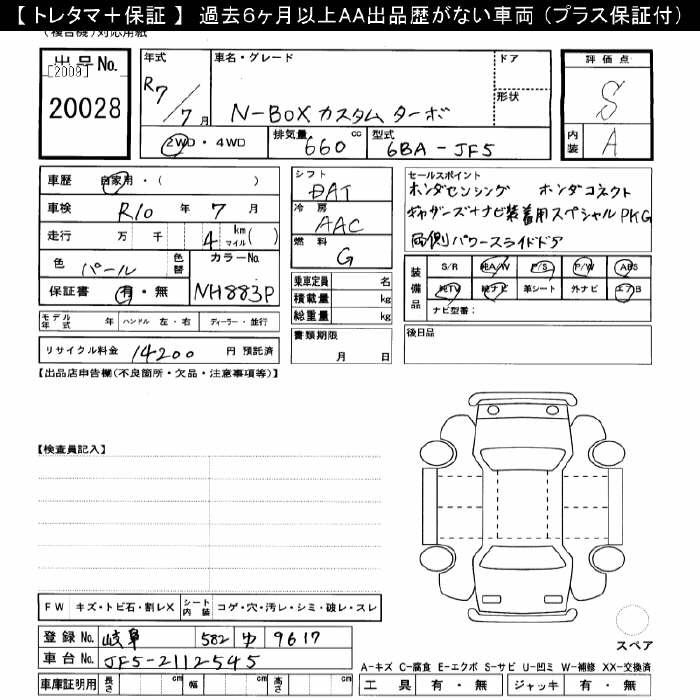 【 トレタマ＋保証 】 過去6ヶ月以上AA出品歴がない車両（プラス保証付）
(複合機)対応用紙
出品No.
[2009]
20028
年式
R7/7月
車名・グレード
N-BOX カスタム ターボ
ドア
形状
2WD・4WD
排気量
660 cc
型式
6BA-JF5
評価点
S
内装
A
車歴 自家用・( )
車検 R10 年 7 月
走行 万 千 4 km マイル( )
色 パール 色替 カラーNo.
保証書 有・無 NH883P
モデル年式 年 ハンドル 左・右 ディーラー・並行
リサイクル料金 14200 円 預託済
シフト
DAT
冷房
AAC
燃料
G
乗車定員 名
積載量 kg
総重量 kg
書類期限
月 日
セールスポイント
ホンダセンシング ホンダコネクト
ギャザーズ+ナビ装着用スペシャルPKG
両側パワースライドドア
装備品
S/R 純A/W P/S P/W ABS
純TV 純ナビ 革シート 外ナビ エアB
ナビ型番：
後日品
【出品店申告欄(不良箇所・欠品・注意事項等)】
【検査員記入】
FW キズ・トビ石・割レX シート内装 コゲ・穴・汚レ・シミ・破レ・スレ
登録No. 岐阜 582 ゆ 9617
車台No. JF5-2112545
車庫証明用 長さ cm 幅 cm 高さ cm
スペア
A-キズ C-腐食 E-エクボ S-サビ U-凹ミ W-補修 XX-交換済
工具 有・無 ジャッキ 有・無